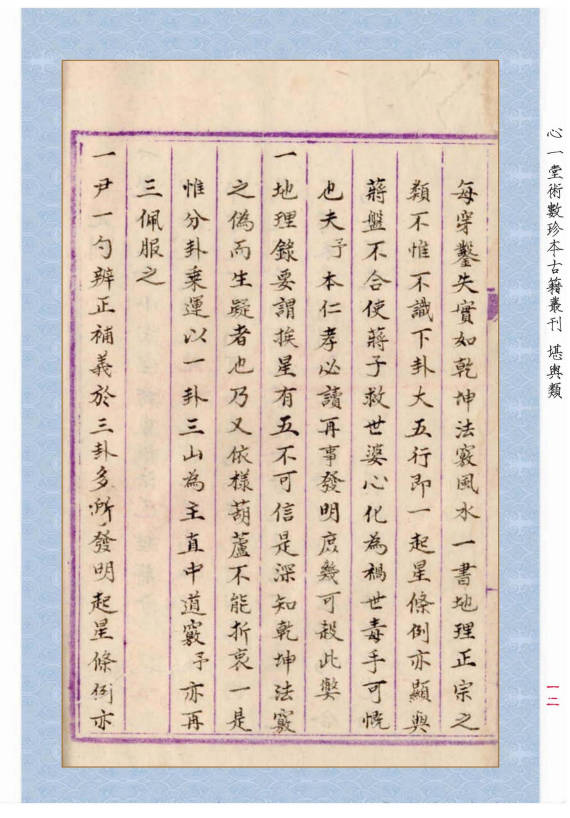 心一堂術數珍本古籍叢刊 堪輿類
一二
每穿鑿失實如乾坤法竅風水一書地理正宗之
類不惟不識下卦大五行即一起星條例亦顯與
蔣盤不合使蔣子救世婆心化為禍世毒手可慨
也夫予本仁孝必讀再事發明庶幾可殺此弊
一地理錄要謂挨星有五不可信是深知乾坤法竅
之偽而生疑者也乃又依樣葫蘆不能折衷一是
惟分卦乘運以一卦三山為主直中道竅予亦再
三佩服之
一尹一勺辨正補義於三卦多所發明起星條例亦